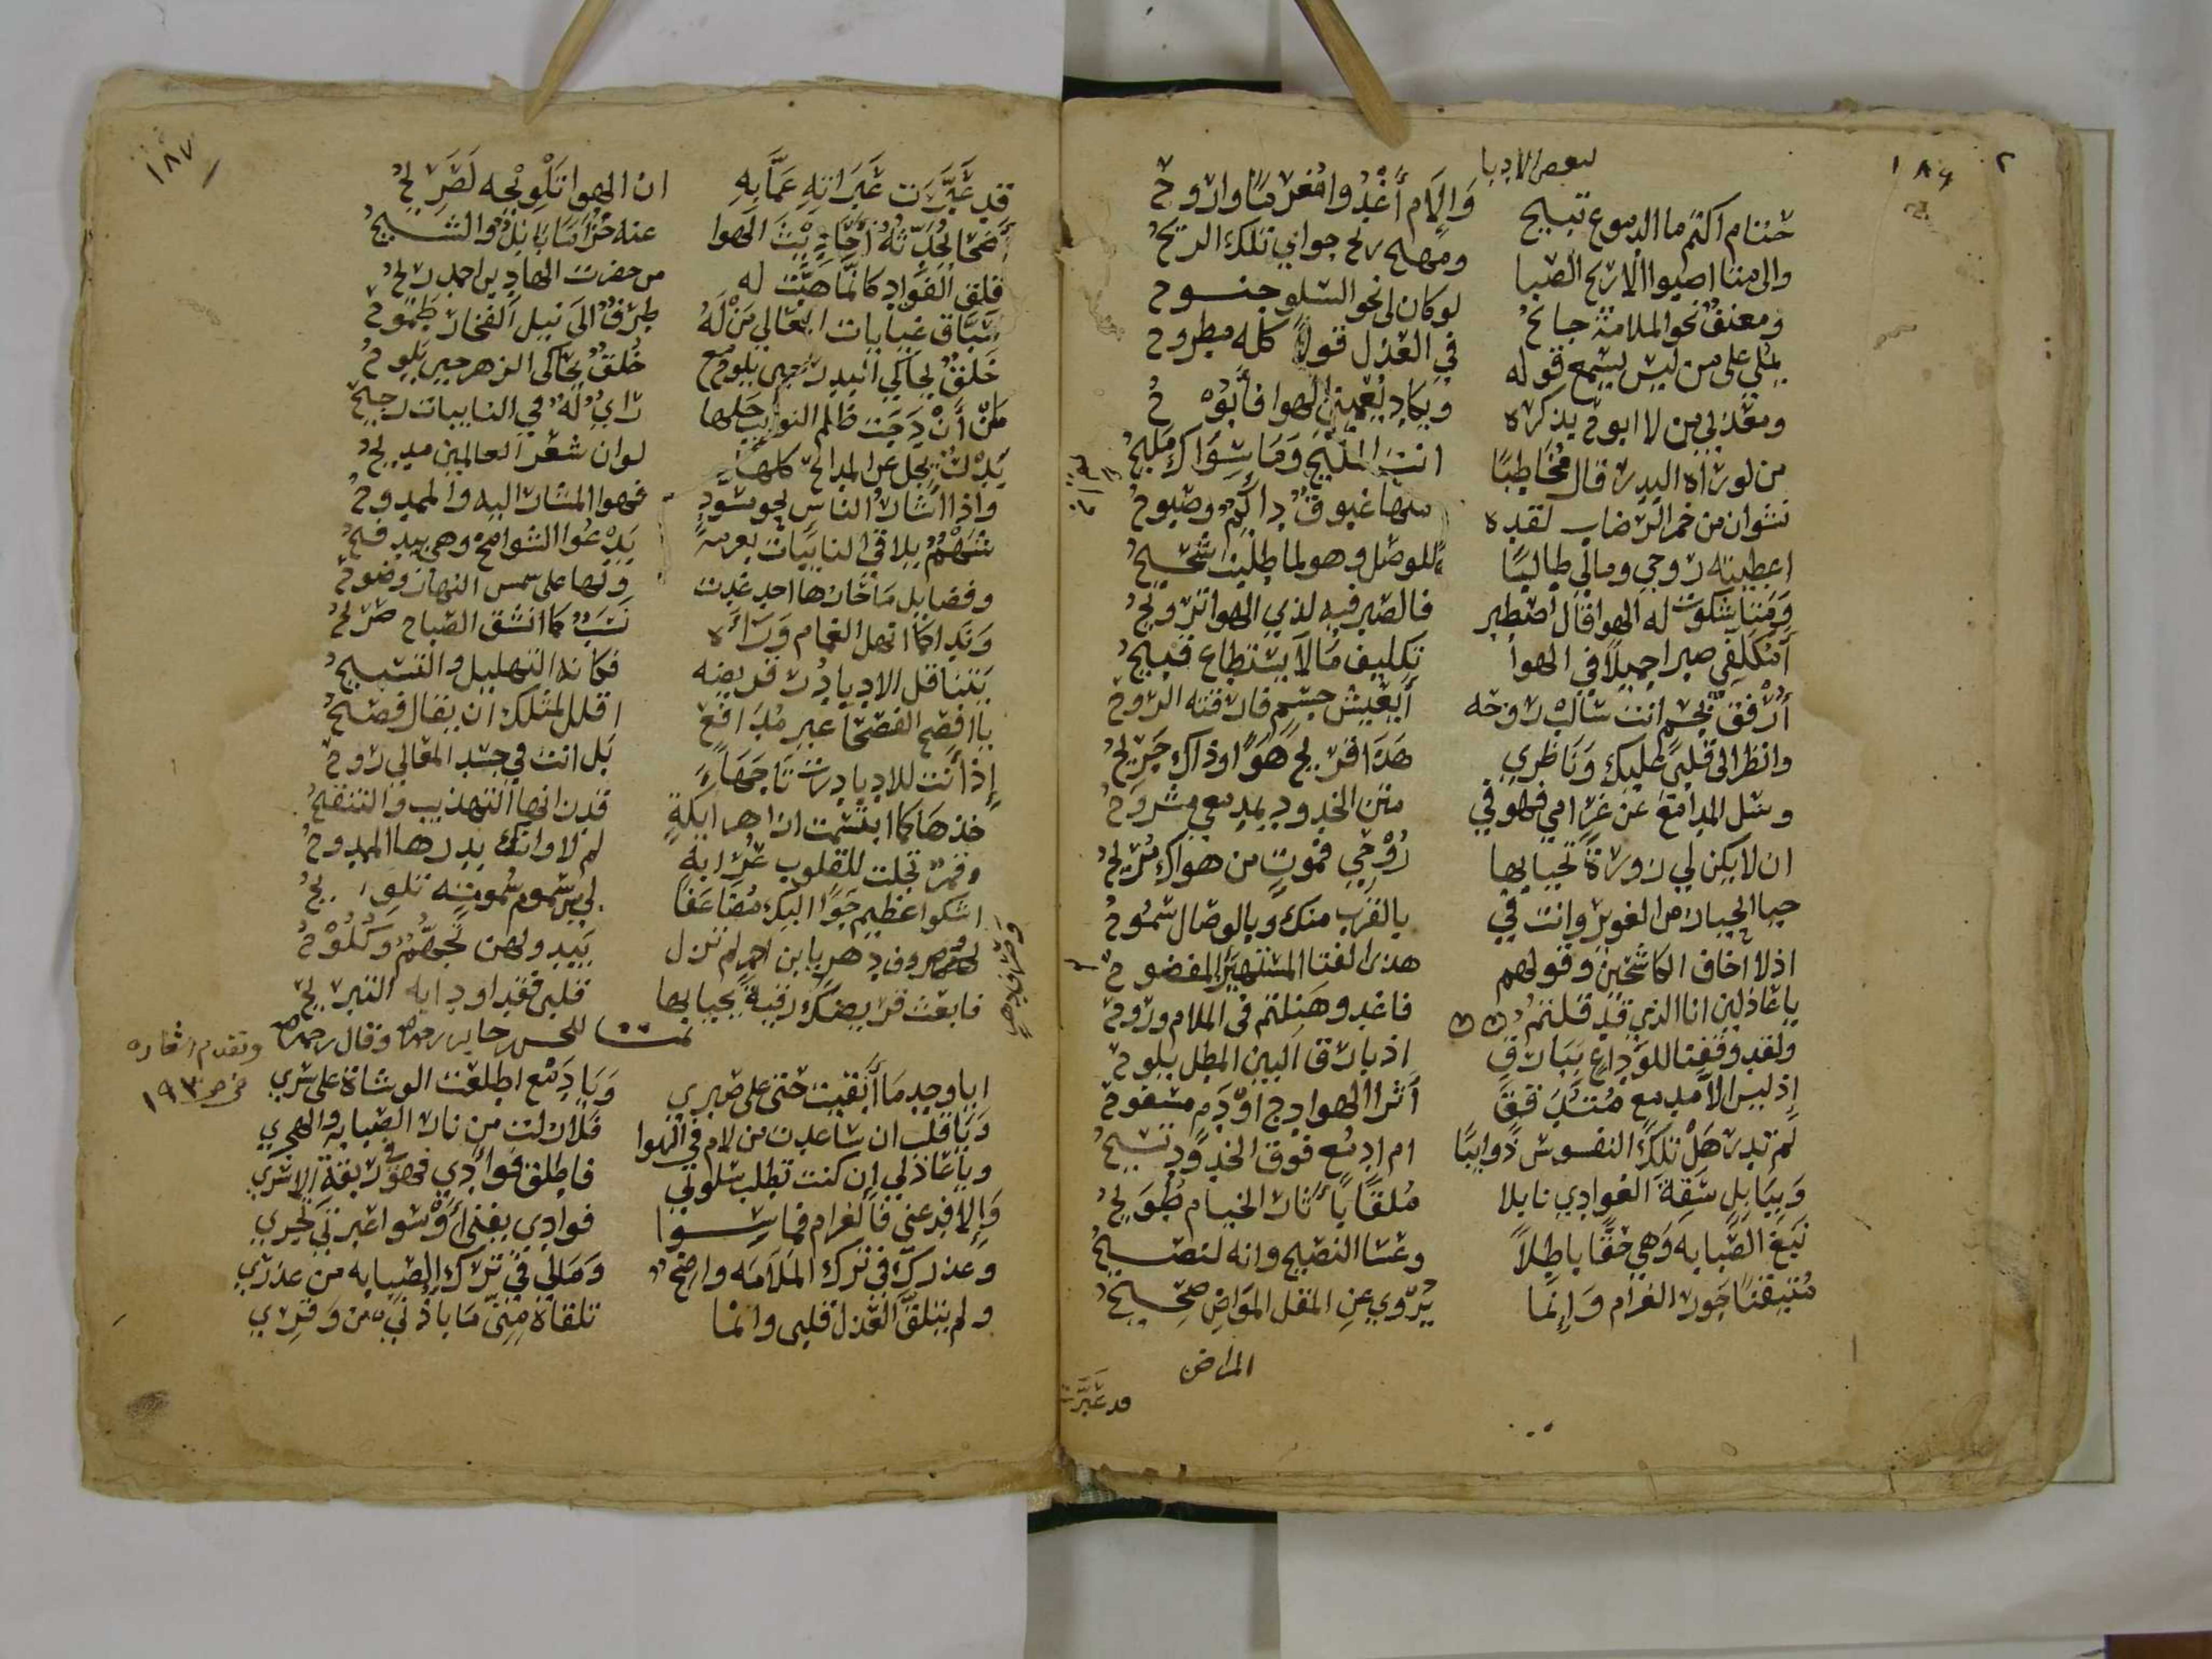 ١٨٦
لبعض الادبا
حتام اكتم ما الدموع تبيح وإلام أغدوا مغرمًا واروح
والى متا اصبوا الارواح الصبا ومهيج ريح جواي تلك الريح
ومعنف نحو الملامة جانح لو كان لى نحو السلو جنوح
يملي على من ليس يسمع قوله في العذل قولاً كله مطروح
ومعذبي من لا ابوح بذكره ويكاد يغلبني الهوا فأبوح
من لو رآه البدر قال مخاطبًا انت المليح وما سواك مليح
نشوان من خمر الرضاب لقده منها غبوق دائم وصبوح
اعطيته روحي ومالي طالبًا للوصل وهو لما طلبت شحيح
ومتا شكوت له الهوا قال اصطبر فالصبر فيه لذي الهوا ترويح
أتكلفي صبرا جميلاً في الهوا تكليف ما لا يستطاع قبيح
أرفق بجسم انت سالب روحه أيعيش جسم فارقته الروح
وانظر الى قلبي عليك وناظري هذا قريح هوًا وذاك جريح
وسل المدامع عن غرامي فهو في متن الخدود بمدمعي مشروح
ان لا يكن لي زورة تحيا بها روحي فموت من هواك مريح
حيا الحيا دار الغوير وانت في بالقرب منك وبالوصال سموح
اذ لا اخاف الكاشحين وقولهم هذى الفتا المستهتر المفضوح
يا عاذلين انا الذي قد قلتم فاغدوا هبلتم في الملام وروحوا
ولقد وقفنا للوداع ببارق اذ بارق البين المطل يلوح
إذ ليس الا مدمع متدفق أثر الهوادج او دم مسفوح
لم تدر هل تلك النفوس ذوايبًا ام ادمع فوق الخدود تسيح
وبيابل سقة الغوادي نابلا ملقًا بأثار الخيام طويح
نبغ الصبابه وهي حقًا باطلاً وعسا النصيح وانه لنصيح
متيقنًا جور الغرام وإنما يروي عن المقل المراض صحيح
المراض
قد عبرت
١٨٧
قد عبرت عبراته عما به ان الهوا تلويحه تصريح
أضحا يحدثه أحاديث الهوا عنه خزاما بابل والشيح
قلق الفواد كأنما هبت له من حضرت الهادي بن احمد ريح
سباق غايات المعالي من له طرف الى نيل الفخار طموح
خلق يحاكي البدر حين يلوح مع خلق يحاكى الزهر حين يلوح
من أن دجت ظلم النوايب حلها رأي له في النايبات رجيح
بدر يجل عن المدائح كلها لو ان شعر العالمين مديح
واذا اشار الناس نحو مسود فهو المشار اليه والممدوح
شهم يلاقى النايبات بعزمة يدعوا الشوامخ وهي بيد فيح
وفضايل ما حازها احد غدت ولها على شمس النهار وضوح
وندا كما انهل الغمام وراءه نسب كما انشق الصباح صريح
يتناقل الادبا در قريضه فكانه التهليل والتسبيح
يا افصح الفصحا غير مدافع اقلل لمثلك ان يقال فصيح
إذ أنت للادبا درت تاجها بل انت في جسد المعالي روح
خذها كما ابتسمت ازاهر ايكة قد زانها التهذيب والتنقيح
وقمر تجلت للقلوب غرابه لم لا وانت بدرها الممدوح
اشكوا عظيم جوًا اليك مضاعفا لي من سموم سمومه تلويح
وصروف دهر يا بن احمد لم تزل يبدو لهن تجهم وكلوح
فابعث قريضك رقية يحيا بها قلبي فقد اودا به التبريح
تمت للحسن جابر رحمه وقال رحمه
وتقدم اشعاره في ص ١٩٣
ايا وجد ما أبقيت حتى على صبري ويا دمع اطلعت الوشاة على سري
ويا قلب ان ساعدت من لام في الهوا فلا زلت من نار الصبابه والهجر
ويا عاذلي إن كنت تطلب سلوتي فاطلق فوأدي فهو في ربقة الاسر
وإلا فدعني فالغرام فما سوا فوادي يفنى أو سوا عبرتي تجري
وعذرك في ترك الملامه واضح ومالي في ترك الصبابه من عذر
ولم يتلق العذل قلبي وانما تلقاه مني ما بأذني من وقر